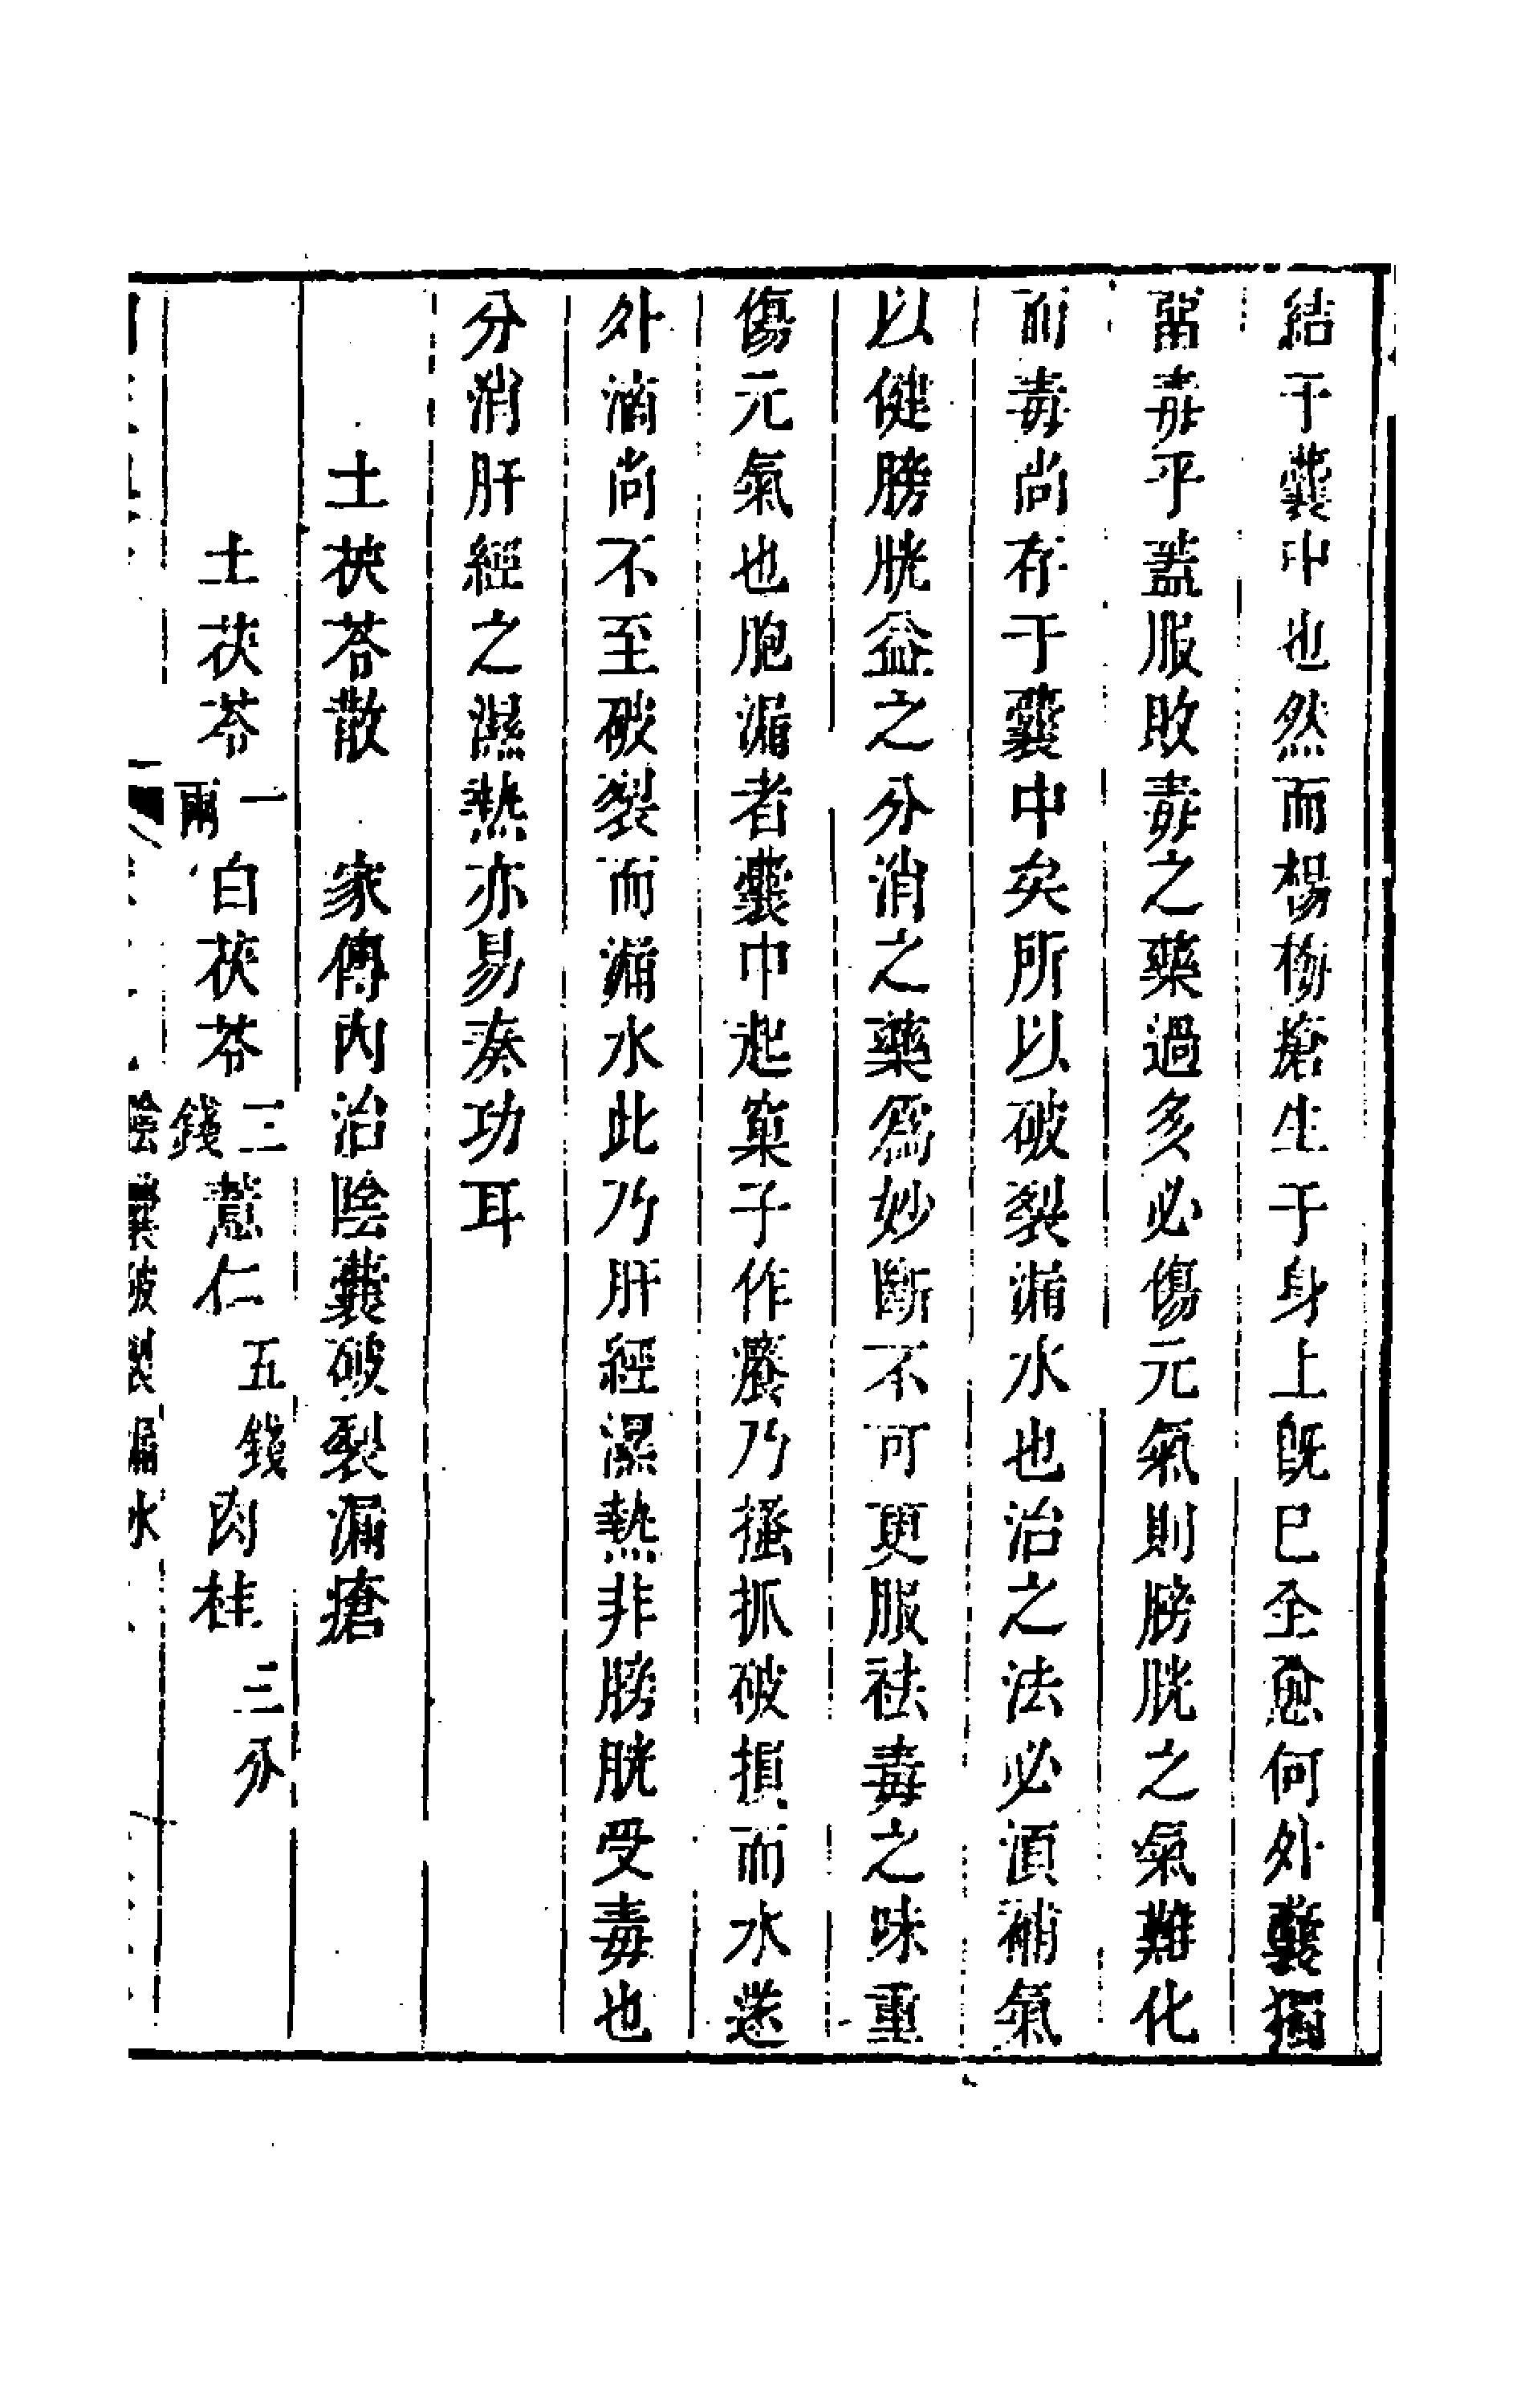 結于囊中也然而楊梅瘡生于身上旣已全愈何外囊獨
畱毒乎葢服敗毒之藥過多必傷元氣則膀胱之氣難化
而毒尚存于囊中矣所以破裂漏水也治之法必須補氣
以健膀胱益之分消之藥爲妙斷不可更服祛毒之味重
傷元氣也胞漏者囊中起窠子作癢乃搔抓破損而水遂
外滴尚不至破裂而漏水此乃肝經濕熱非膀胱受毒也
分消肝經之濕熱亦易奏功耳
土茯苓散　家傳內治陰囊破裂漏瘡
土茯苓一兩白茯苓三錢薏仁五錢肉桂三分
陰囊破裂漏水